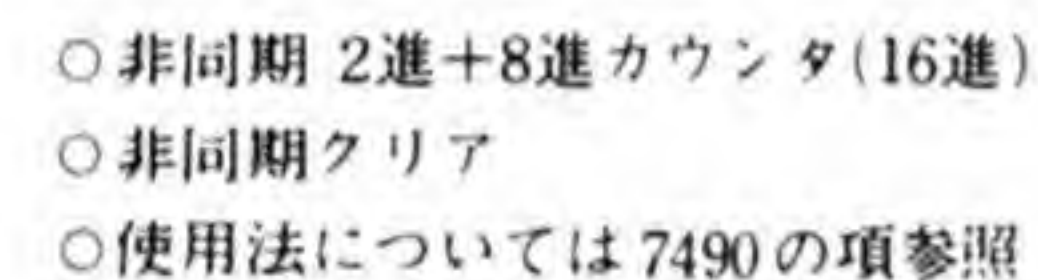 ○非同期 2進+8進カウンタ(16進)
○非同期クリア
○使用法については7490の項参照